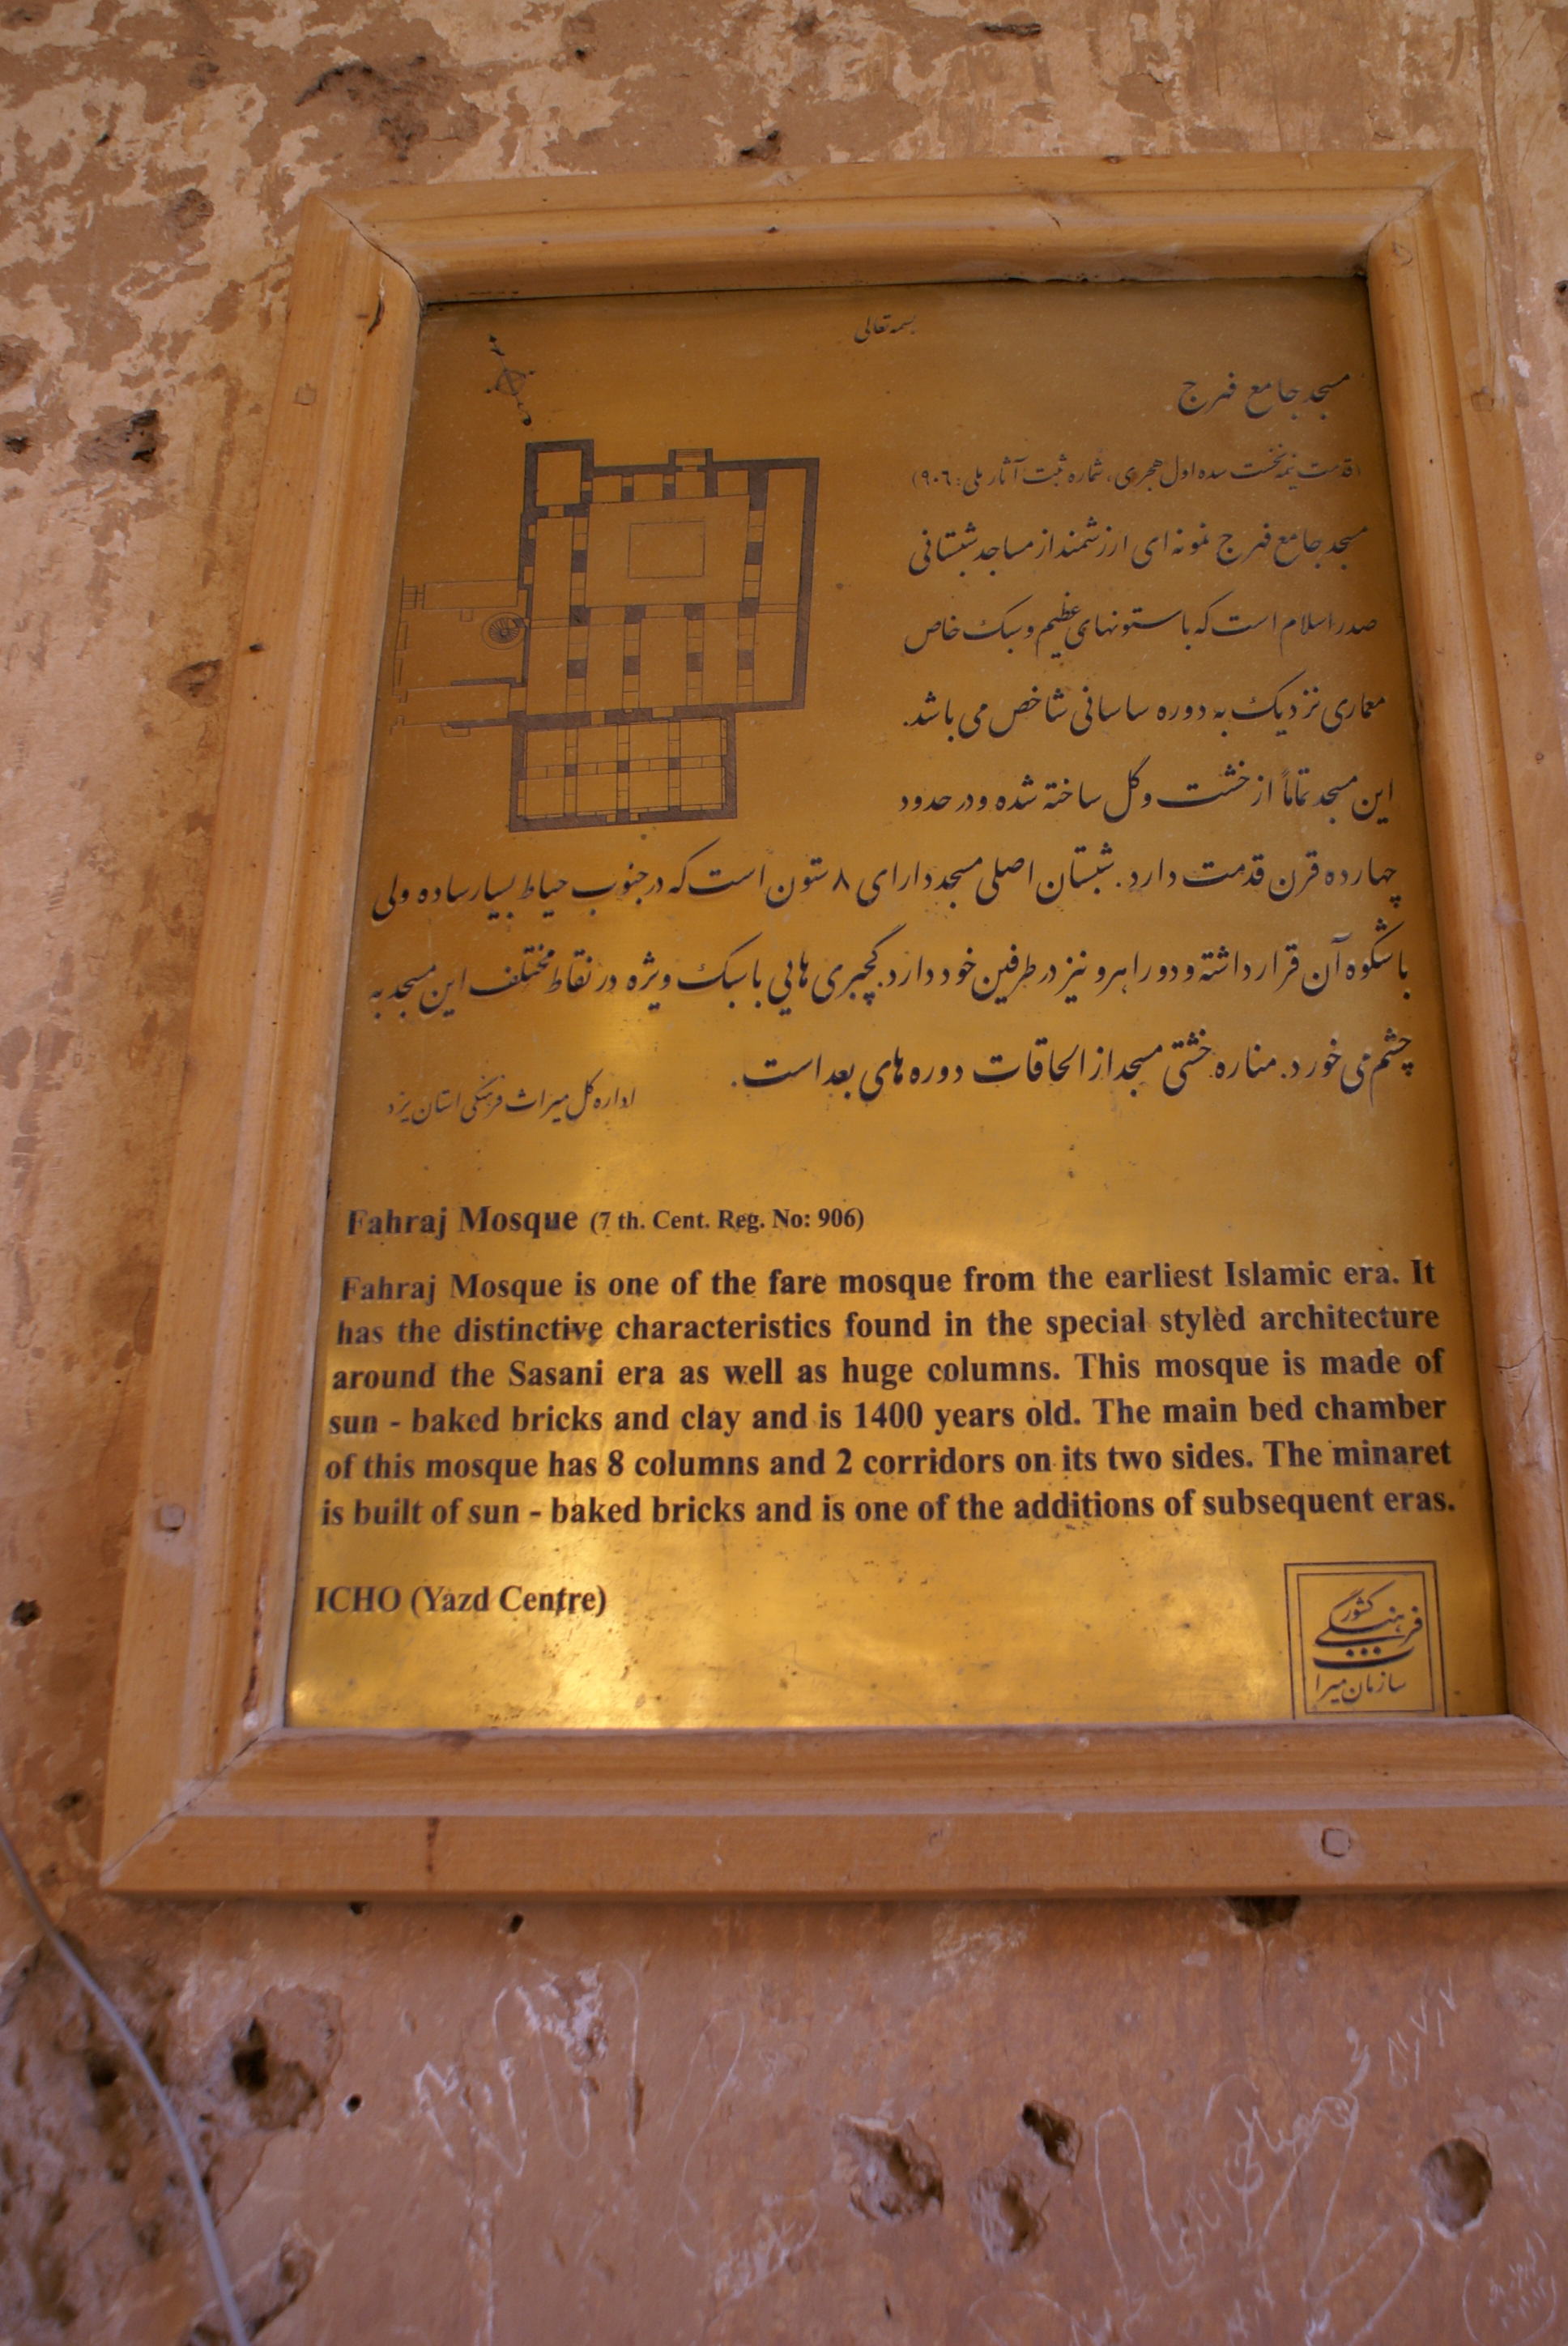 بسمه تعالی
مسجد جامع فهرج
(قدمت نیمه نخست سده اول هجری، شماره ثبت آثار ملی: ۹۰۶)
مسجد جامع فهرج نمونه ای ارزشمند از مساجد شبستانی
صدر اسلام است که با ستونهای عظیم و سبک خاص
معماری نزدیک به دوره ساسانی شاخص می باشد.
این مسجد تماماً از خشت و گل ساخته شده و در حدود
چهارده قرن قدمت دارد. شبستان اصلی مسجد دارای ۸ ستون است که در جنوب حیاط بسیار ساده ولی
باشکوه آن قرار داشته و دو راهرو نیز در طرفین خود دارد. گچبری هایی با سبک ویژه در نقاط مختلف این مسجد به
چشم می خورد. مناره خشتی مسجد از الحاقات دوره های بعد است.
اداره کل میراث فرهنگی استان یزد
Fahraj Mosque (7 th. Cent. Reg. No: 906)
Fahraj Mosque is one of the fare mosque from the earliest Islamic era. It
has the distinctive characteristics found in the special styled architecture
around the Sasani era as well as huge columns. This mosque is made of
sun - baked bricks and clay and is 1400 years old. The main bed chamber
of this mosque has 8 columns and 2 corridors on its two sides. The minaret
is built of sun - baked bricks and is one of the additions of subsequent eras.
ICHO (Yazd Centre)
سازمان میراث
فرهنگی
کشور